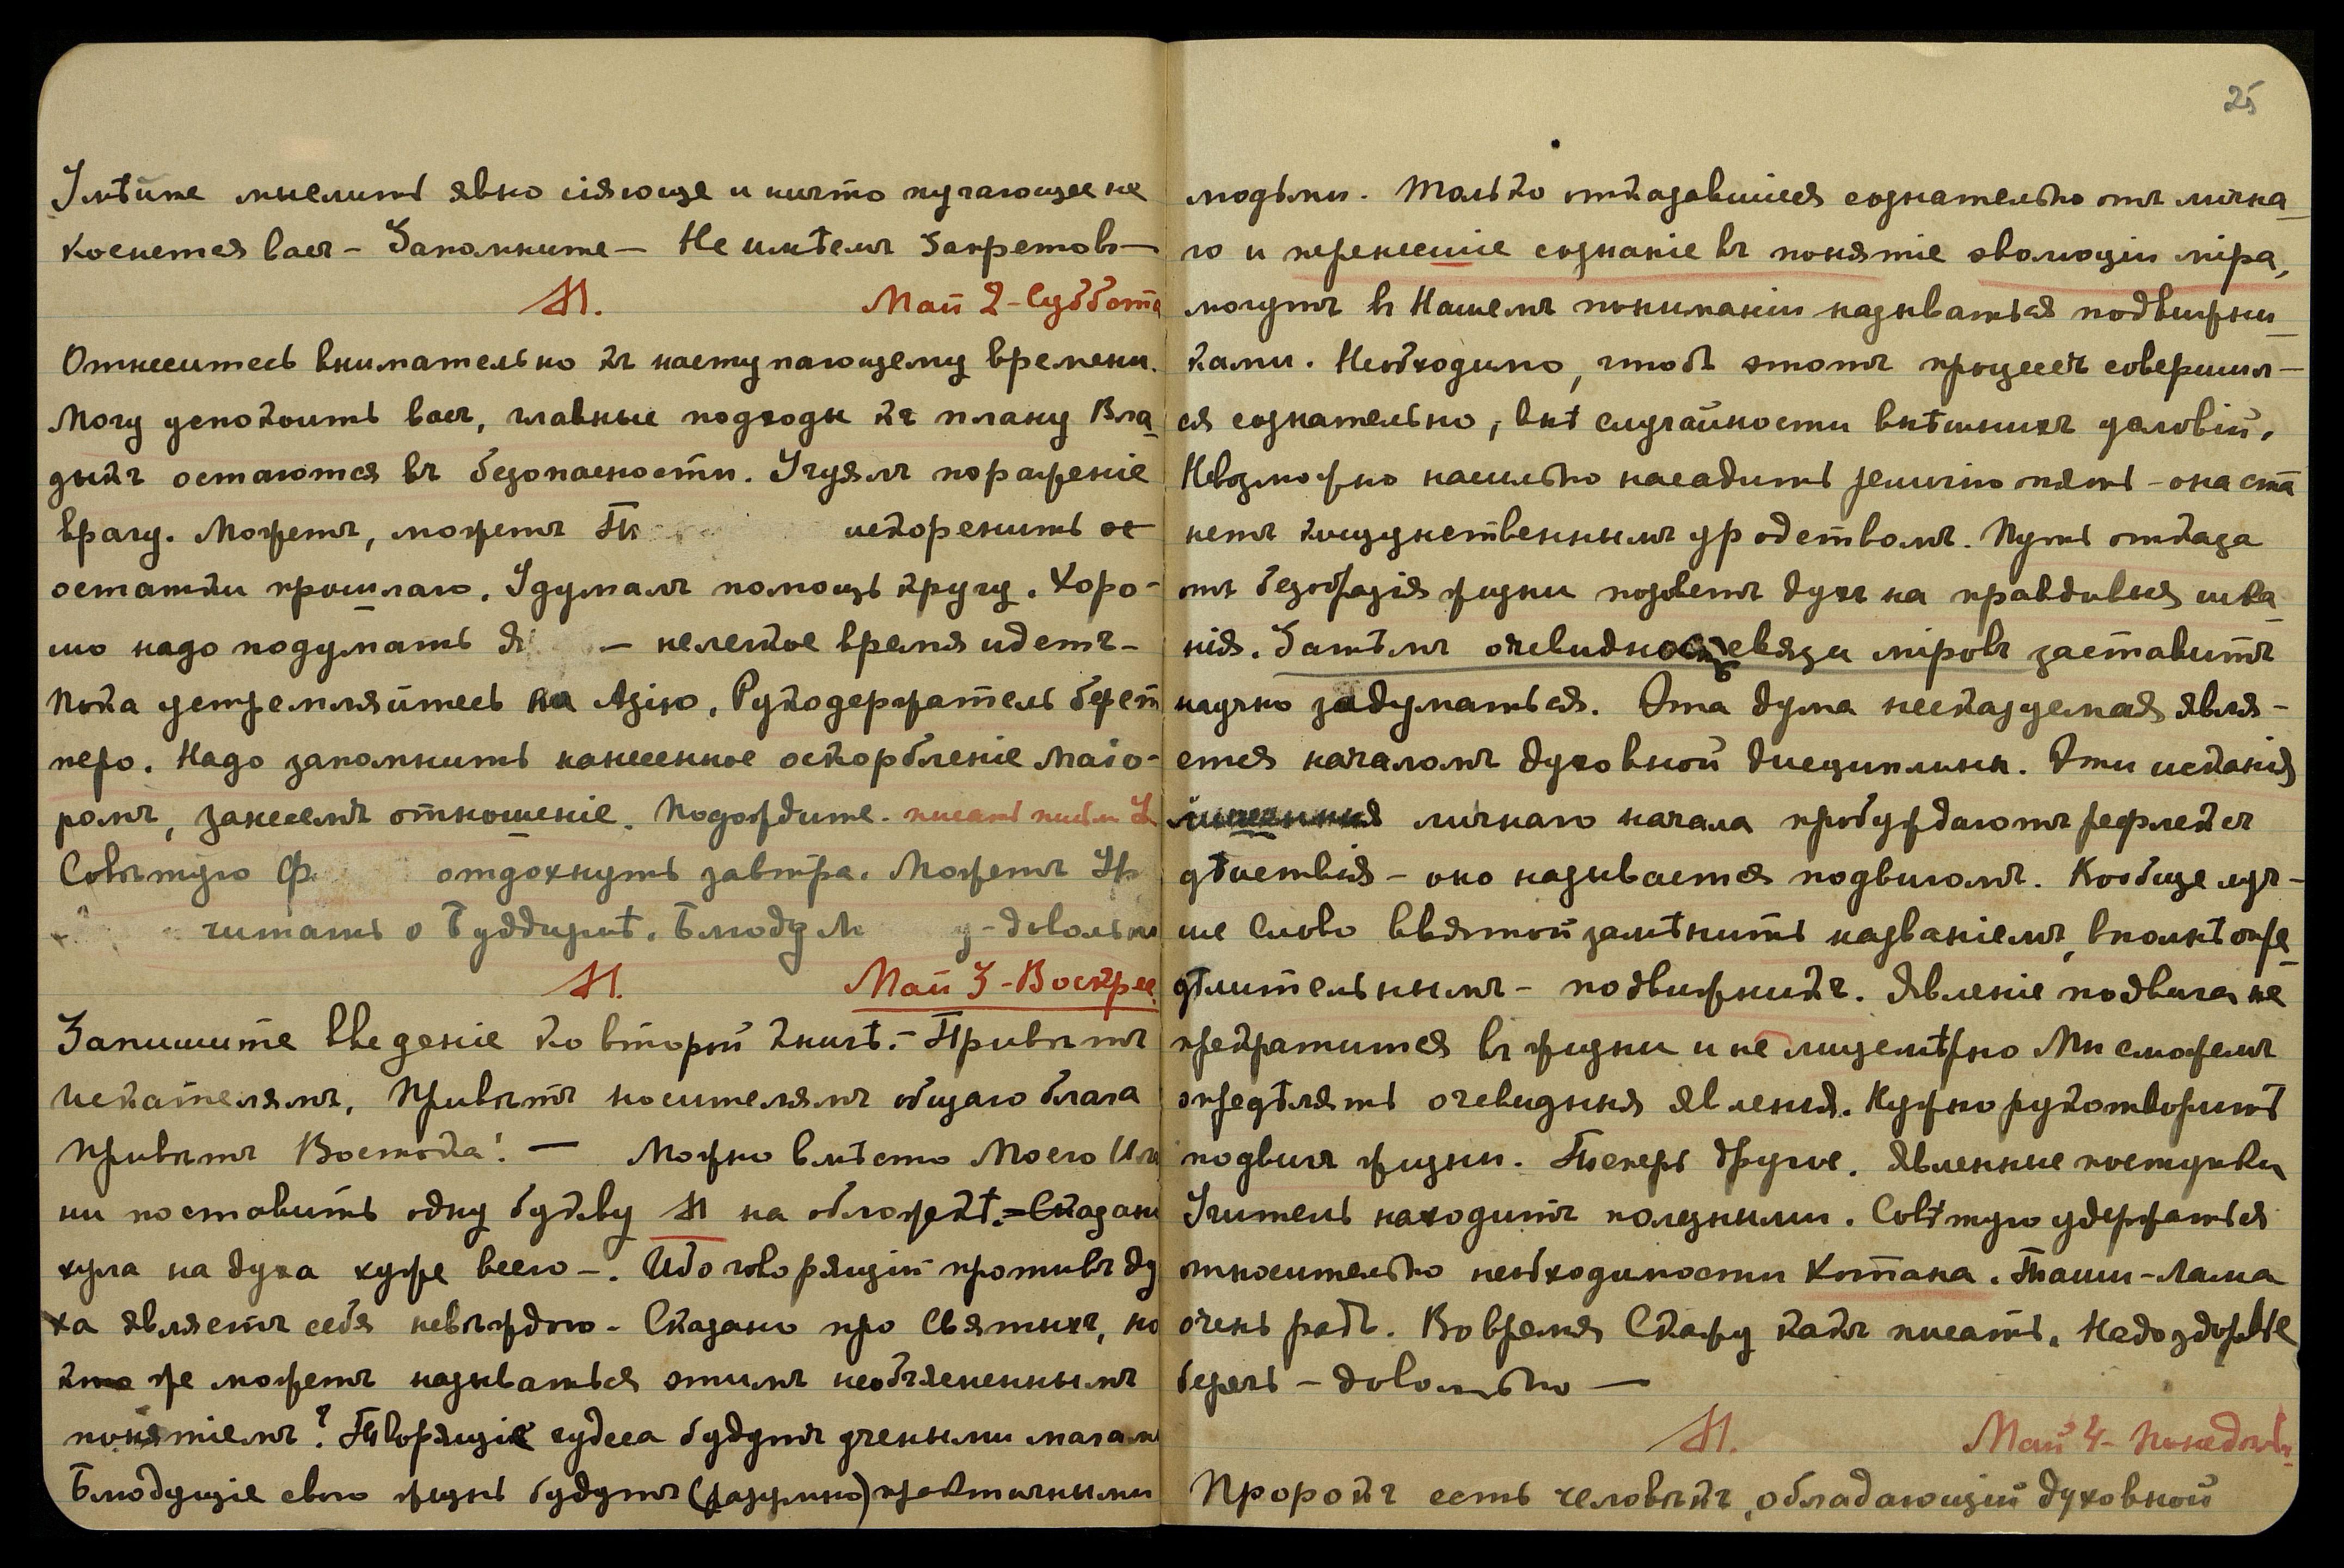 25
Умѣйте мыслить явно сіяюще и ничто пугающее не
коснется васъ – Запомните – Не имѣемъ Запретовъ –
М. Май 2 - Суббота
Отнеситесь внимательно къ наступающему времени.
Могу успокоить васъ, главные подходы къ плану Вла
дыкъ остаются въ безопасности. Учуялъ пораженіе
врагу. Можетъ, можетъ искоренить
остатки прошлаго. Удумалъ помощь кругу. Хоро-
шо надо подумать – нелегкое время идетъ –
Пока устремляйтесь на Азію. Рукодержатель берет
перо. Надо запомнить нанесенное оскорбленіе Маіо-
ромъ, занесемъ отношеніе. Подождите.
Совѣтую Ф отдохнуть завтра. Можетъ
читать о Буддизмѣ. Блюду М у – довольно
М. Май 3 - Воскрес.
Запишите введеніе ко второй книгѣ. – Привѣтъ
искателямъ, Привѣтъ носителямъ общаго блага
Привѣтъ Востока! – Можно вмѣсто Моего Име
ни поставить одну букву М на обложкѣ. = Сказано
хула на духа хуже всего –. Ибо говорящій противъ ду
ха являетъ себя невѣждою – Сказано про Святыхъ, но
кто же можетъ называться этимъ необъясненнымъ
понятіемъ? Творящіе чудеса будутъ учеными магами
Блюдущіе свою жизнь будутъ (разумно) практичными
людьми. Только отказавшіеся сознательно отъ лична_
го и перенесшіе сознаніе въ понятіе эволюціи міра,
могутъ въ Нашемъ пониманіи называться подвижни_
ками. Необходимо, чтобъ этотъ процессъ совершил-
ся сознательно, внѣ случайности внѣшнихъ условій.
Невозможно насильно насадить пять – она ста
нетъ кощунственнымъ уродствомъ. Путь отказа
отъ безобразія жизни позоветъ духъ на правдивыя иска_
нія. Затѣмъ очевидность связи міровъ заставитъ
научно задуматься. Эта дума несказуемая явля-
ется началомъ духовной дисциплины. Эти исканія
личнаго начала пробуждаютъ рефлексъ
дѣйствія – оно называется подвигомъ. Вообще луч-
ше Слово Святой замѣнить названіемъ, вполнѣ опре_
дѣлительнымъ – подвижникъ. Явленіе подвига не
прекратится въ жизни и не лицемѣрно Мы сможемъ
опредѣлять очевидныя явленія. Нужно рукотворить
подвигъ жизни. Теперь другое. Явленные поступки
Учитель находитъ полезными. Совѣтую удержаться
относительно необходимости Хотана. Таши-Лама
очень радъ. Во время Скажу какъ писать. Надо здоровье
беречь – довольно –
М. Май 4 - Понедѣль.
Пророкъ есть человѣкъ, обладающій духовной